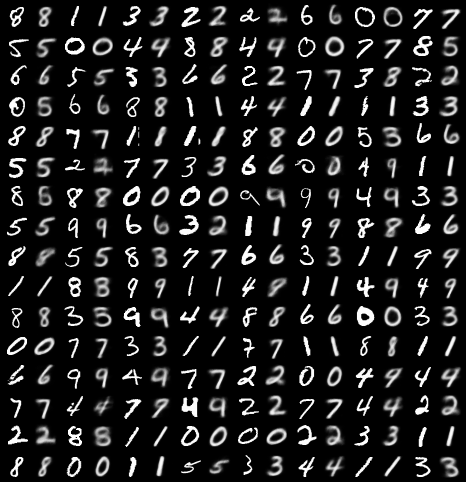 8 8 1 1 3 3 2 2 2 2 6 6 0 0 7 7
5 5 0 0 4 4 8 8 4 4 0 0 7 7 8 5
6 6 5 5 3 3 6 6 2 2 7 7 3 8 2 2
0 5 6 6 8 8 1 1 4 4 1 1 1 1 3 3
8 8 7 7 1 8 1 1 8 8 0 0 5 3 6 6
5 5 2 2 7 7 3 3 6 6 0 0 4 9 1 1
8 6 8 8 0 0 0 0 9 9 9 9 4 9 3 3
5 5 9 9 6 6 3 2 1 1 9 9 8 8 6 6
8 8 5 5 8 3 7 7 6 6 3 3 1 1 9 9
1 1 8 8 9 9 1 1 4 8 1 1 4 9 4 9
8 8 3 5 9 9 4 4 8 8 6 6 0 0 3 3
0 0 7 7 3 3 1 1 7 7 1 1 8 8 1 1
6 6 9 9 4 9 7 7 2 2 0 0 4 9 4 4
7 7 4 4 7 9 4 9 2 2 7 7 4 4 2 2
2 2 8 8 1 1 0 0 0 0 2 2 3 3 1 1
8 8 0 0 1 1 5 5 3 3 4 4 1 1 3 3